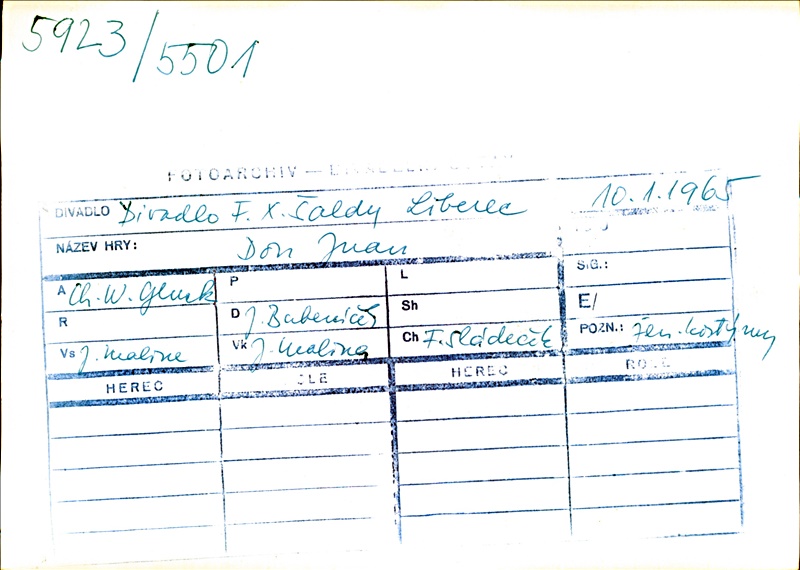 5923/5501
FOTOARCHIV —
DIVADLO Divadlo F. X. Šaldy Liberec 10.1.1965
NÁZEV HRY: Don Juan
A Ch. W. Gluck P L SIG.:
R D J. Bubeníček Sh E/
Vs J. Malina Vk J. Malina Ch F. Sládeček POZN.: žen. kostýmy
HEREC ROLE HEREC ROLE